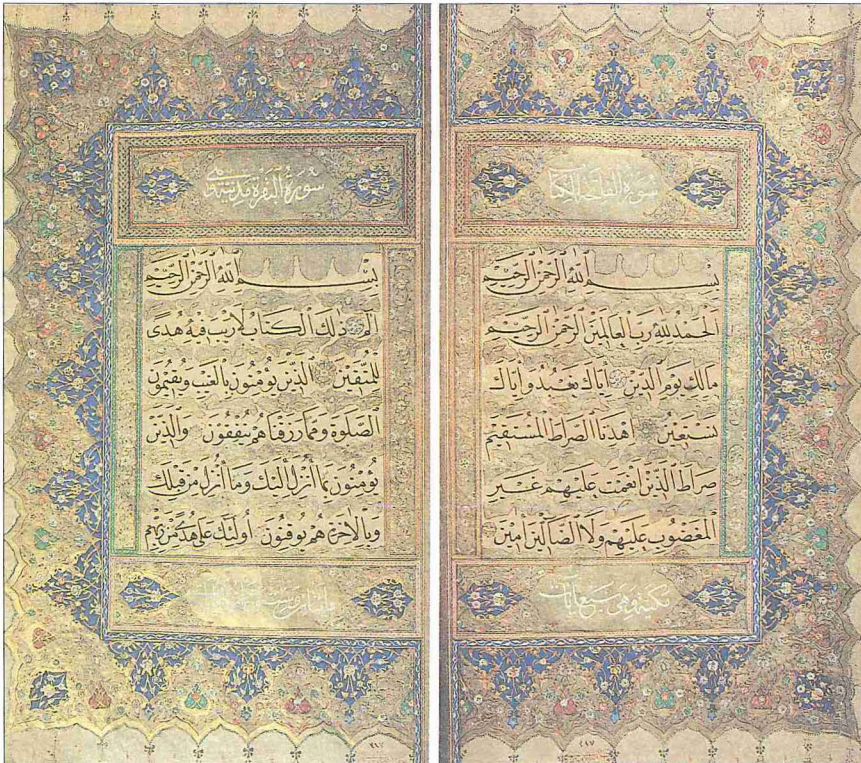 سورة الفاتحة الكتاب
بِسْمِ اللّٰهِ الرَّحْمٰنِ الرَّحِيمِ
اَلْحَمْدُ لِلّٰهِ رَبِّ الْعَالَمِينَ الرَّحْمٰنِ الرَّحِيمِ
مَالِكِ يَوْمِ الدِّينِ اِيَّاكَ نَعْبُدُ وَاِيَّاكَ
نَسْتَعِينُ اِهْدِنَا الصِّرَاطَ الْمُسْتَقِيمَ
صِرَاطَ الَّذِينَ اَنْعَمْتَ عَلَيْهِمْ غَيْرِ
الْمَغْضُوبِ عَلَيْهِمْ وَلَا الضَّالِّينَ اٰمِينَ
مكية وهي سبع آيات
سورة البقرة مدنية وهي
بِسْمِ اللّٰهِ الرَّحْمٰنِ الرَّحِيمِ
الم ذٰلِكَ الْكِتَابُ لَا رَيْبَ فِيهِ هُدًى
لِلْمُتَّقِينَ اَلَّذِينَ يُؤْمِنُونَ بِالْغَيْبِ وَيُقِيمُونَ
الصَّلٰوةَ وَمِمَّا رَزَقْنَاهُمْ يُنْفِقُونَ وَالَّذِينَ
يُؤْمِنُونَ بِمَا اُنْزِلَ اِلَيْكَ وَمَا اُنْزِلَ مِنْ قَبْلِكَ
وَبِالْاٰخِرَةِ هُمْ يُوقِنُونَ اُولٰئِكَ عَلٰى هُدًى مِنْ رَبِّهِمْ